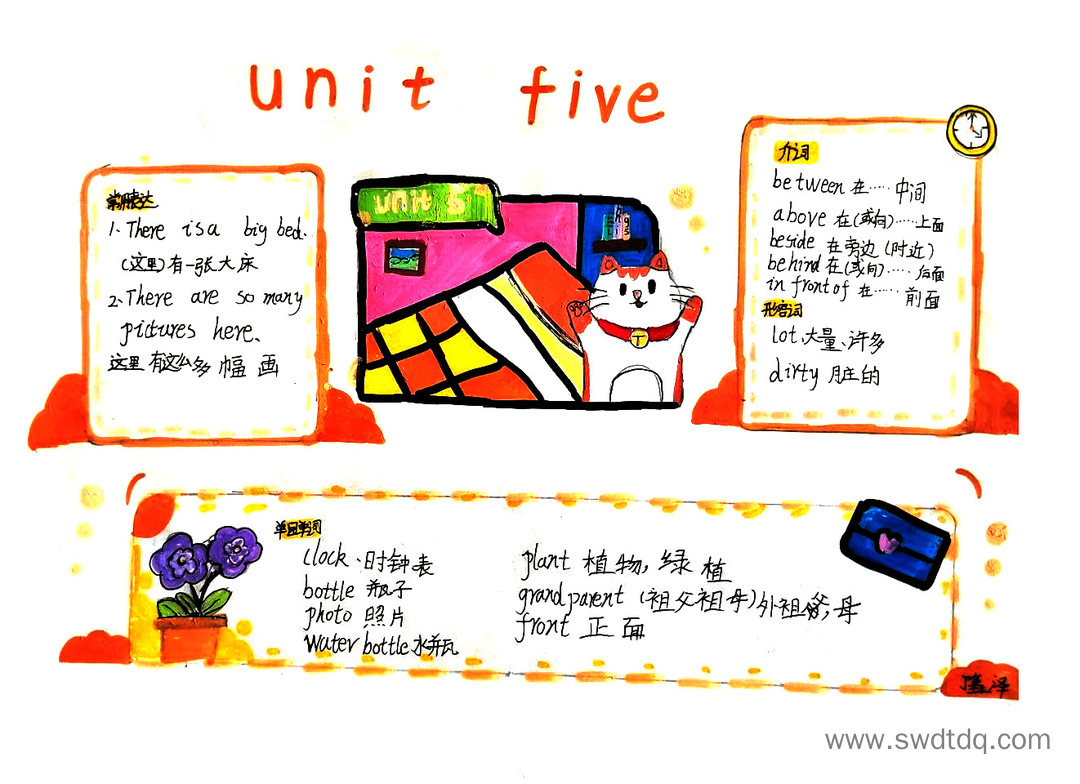 unit five
常用表达
1. There is a big bed.
(这里)有一张大床
2. There are so many
pictures here.
这里 有这么多 幅 画
unit 5
介词
between 在……中间
above 在(或向)……上面
beside 在旁边(附近)
behind 在(或向)……后面
in front of 在……前面
形容词
lot 大量、许多
dirty 脏的
单词
clock、时钟表
bottle 瓶子
photo 照片
water bottle 水瓶
plant 植物,绿植
grandparent (祖父祖母)外祖父,母
front 正面
www.swdtdq.com